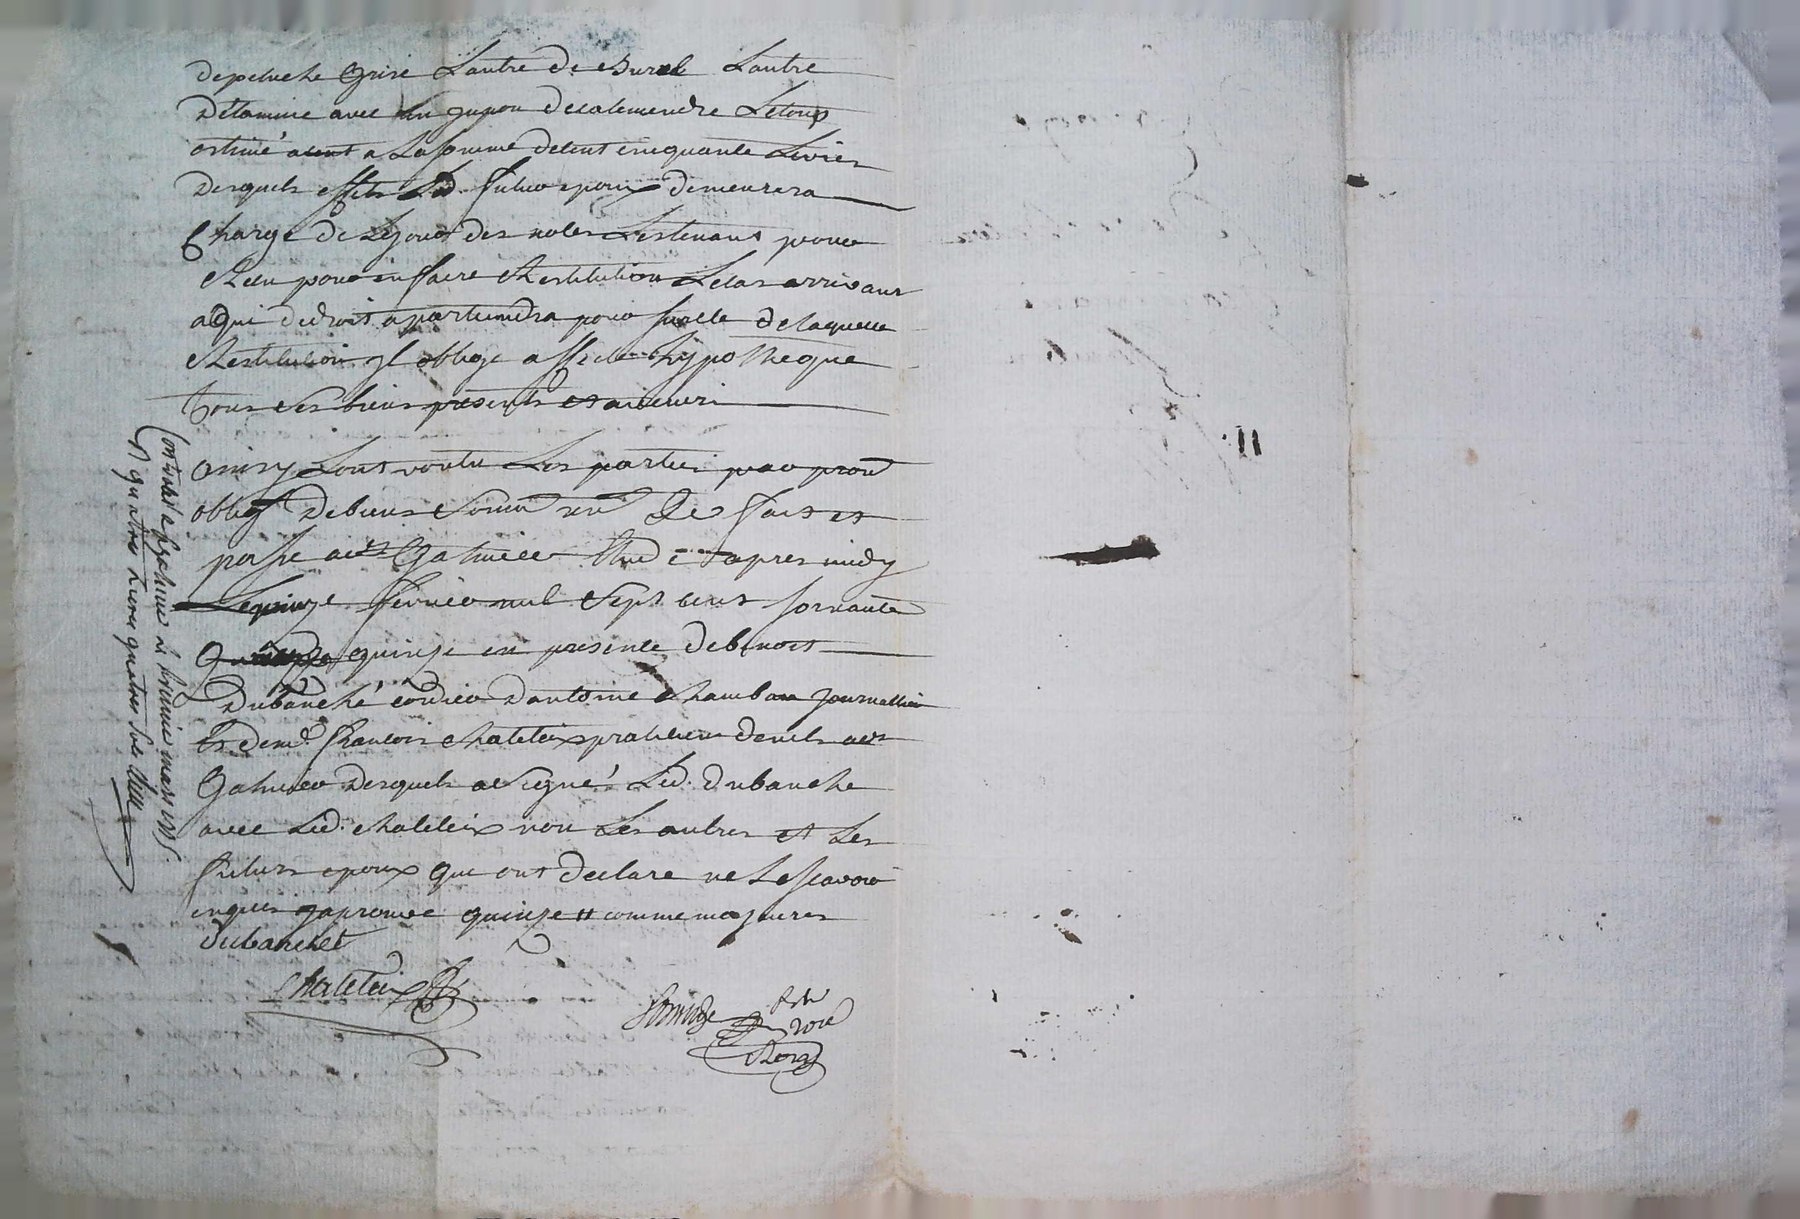 depeluche Grise Lautre de Burat Lautre
détamine avec un jupon decalemendre Letoup
estimé a Lasomme decent cinquante Livres
desquels effets Led. futur epoux demeurera
Charge de Lejour des noles Lestenant pour
Reçu pour en faire Restitution Lecas arrivant
a Qui dedroit apartiendra pour sureté delaquelle
Restitution il oblige affecte hypotheque
tous ses biens presents et avenir
ainsy Lont voulu Les parties par prom
oblig de biens soum ren De fait et
passe a Gahniere Etude apres midy
Lequinze fevrier mil Sept cent soixante
quinze en presence debenoit
Dubanché cordier dantoine Chambau journallier
Et dem. francois chateleix praticien dud.
Gahniere desquels a signé Led. dubanche
avec Led. chateleix non Les autres et Les
futurs epoux qui ont declare ne Lesçavoir
enquis japrouve quinze comme majeures
dubanchet
Chateleix
Not
roial
Controllé a le mars 1775.
R quatre livres quatre sols
11